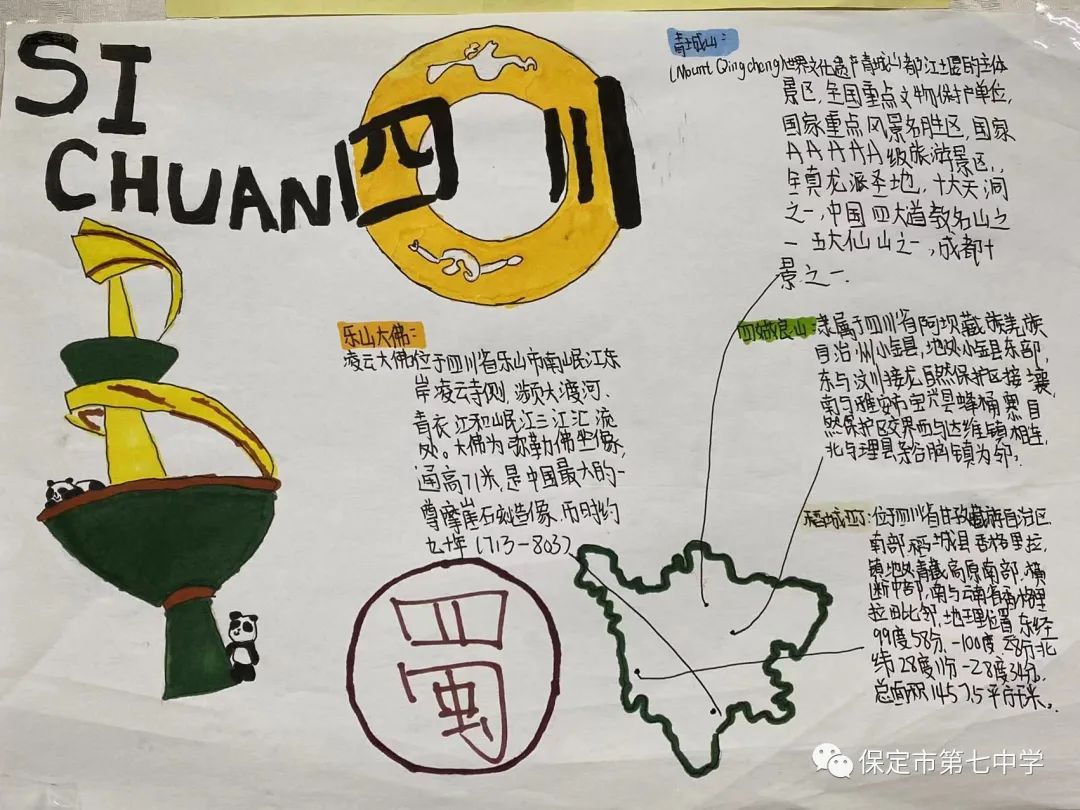 SI
CHUAN
四川
青城山:
(Mount Qingcheng)世界文化遗产青城山都江堰的主体
景区,全国重点文物保护单位,
国家重点风景名胜区,国家
AAAAA级旅游景区,
全真龙派圣地,十大天洞
之一,中国四大道教名山之
一五大仙山之一,成都十
景之一.
乐山大佛:
凌云大佛位于四川省乐山市南岷江东
岸凌云寺侧,濒大渡河.
青衣江和岷江三江汇流
处。大佛为弥勒佛坐像,
通高71米,是中国最大的一
尊摩崖石刻造像.而时约
九十年(713-803)
四姑娘山:隶属于四川省阿坝藏族羌族
自治州小金县,地处小金县东部,
东与汶川接龙自然保护区接壤,
南与雅安市宝兴县蜂桶寨自
然保护区交界西与达维镇相连,
北与理县杂谷脑镇为邻,
稻城亚丁:位于四川省甘孜藏族自治区
南部稻城县香格里拉,
镇地处青藏高原南部,横
断中部,南与云南省香格里
拉田比邻,地理位置东经
99度58分,-100度28分北
纬28度11分-28度34分.
总面积1457.5平方千米。
四
蜀
保定市第七中学